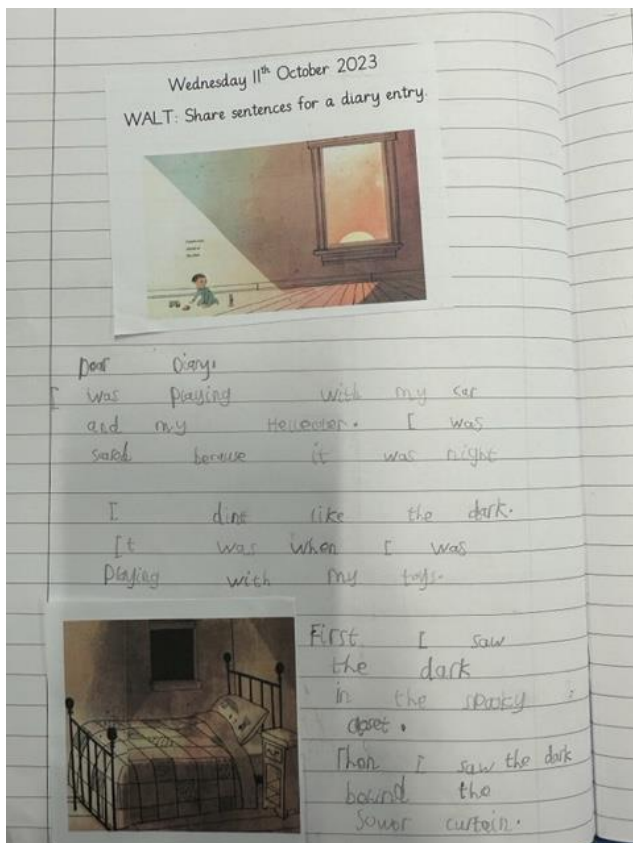 Wednesday 11th October 2023
WALT: Share sentences for a diary entry.
Dear Diary,
I was playing with my car
and my Helleoter. I was
scared because it was night
I dint like the dark.
It was when I was
playing with my toys.
First I saw
the dark
in the spooky
closet.
Then I saw the dark
bound the
sower curtain.